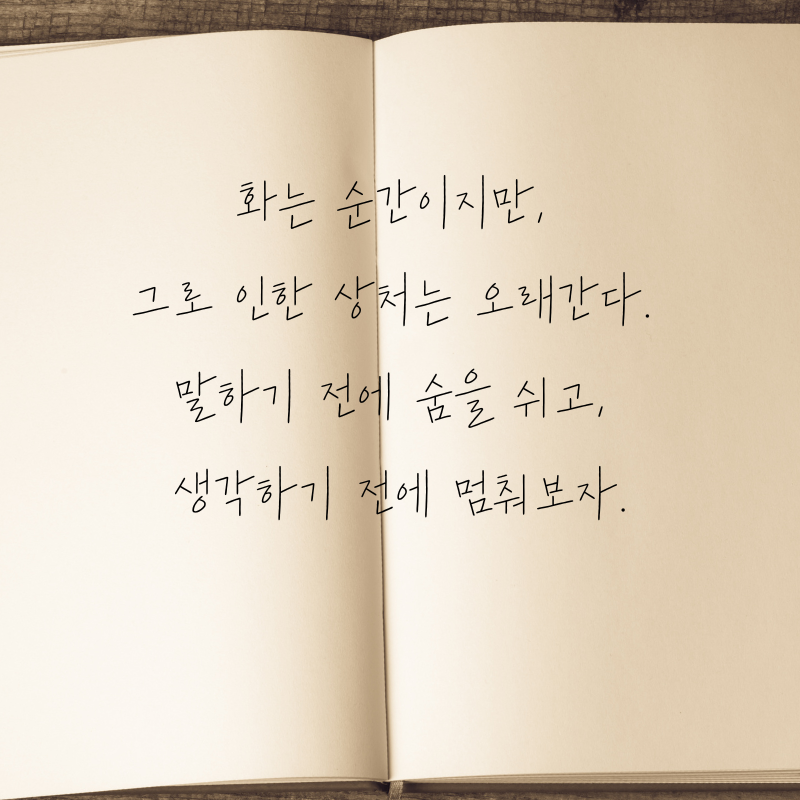 화는 순간이지만,
그로 인한 상처는 오래간다.
말하기 전에 숨을 쉬고,
생각하기 전에 멈춰보자.